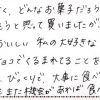 く、どんなお菓子だろう
もうと思って買いましたが
おいしい 私の大好きな
ョコでくるまれてることを
、びっくりで 大事に食べ
また機会があれば 食べ